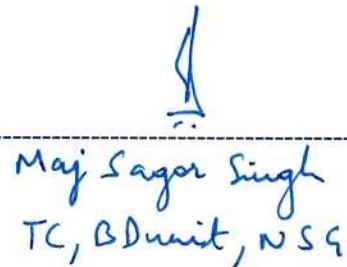 Maj Sagar Singh
TC, BDunit, NSG